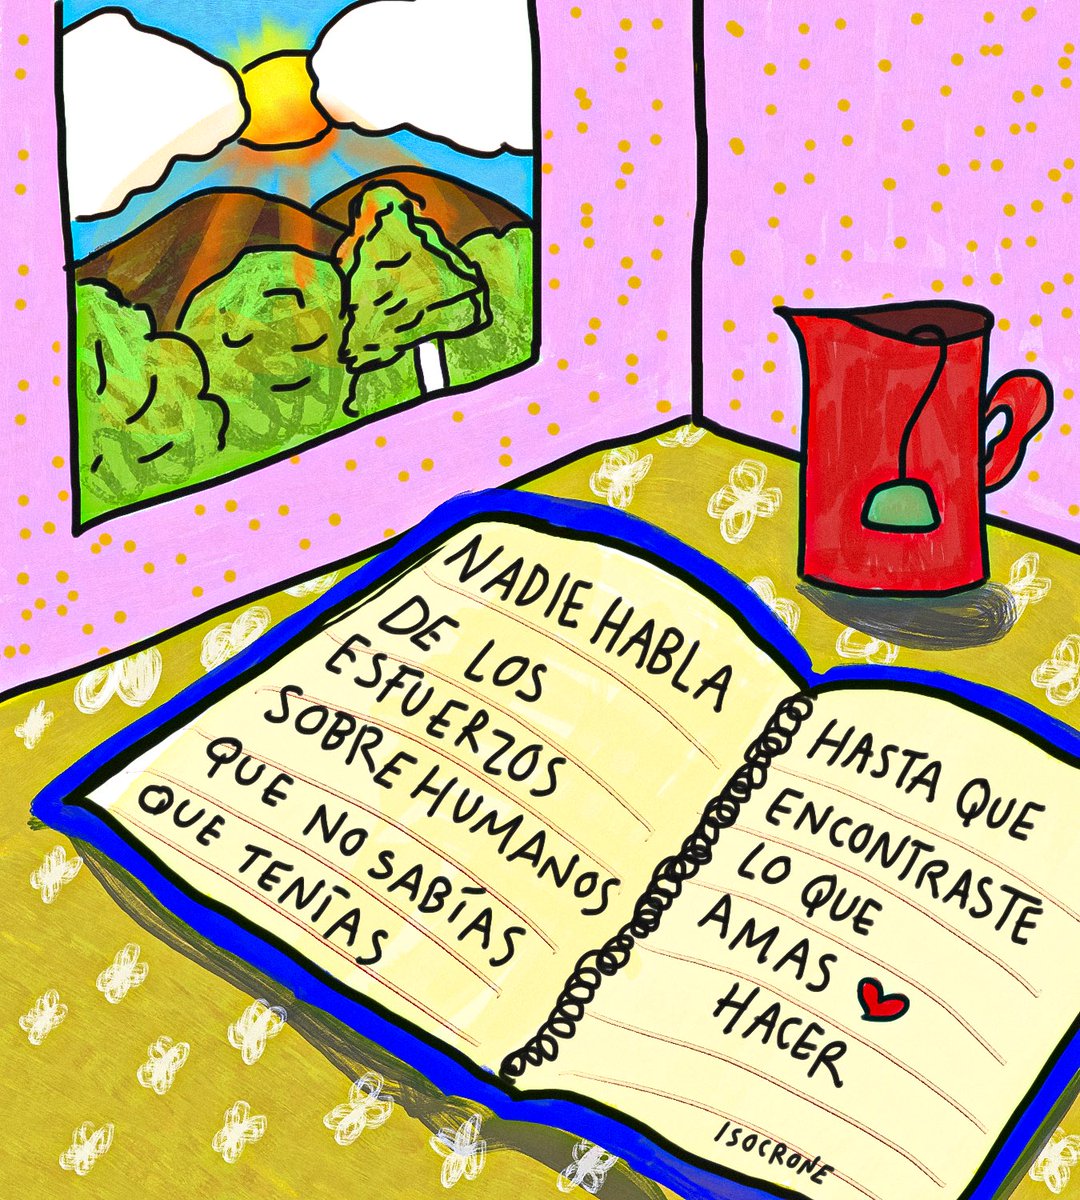 NADIE HABLA
DE LOS
ESFUERZOS
SOBREHUMANOS
QUE NO SABÍAS
QUE TENÍAS
HASTA QUE
ENCONTRASTE
LO QUE
AMAS
HACER
ISOCRONE